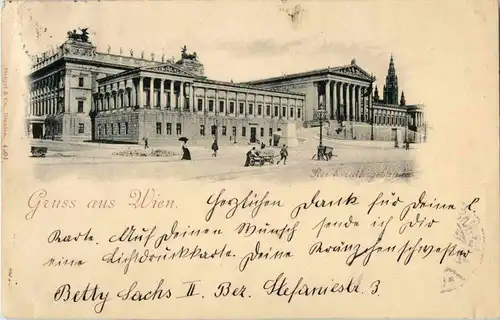 Stengel & Co., Dresden 4794
Reichsrathsgebäude
Gruss aus Wien.
Herzlichen Dank für Deine l.
Karte. Auf Deinen Wunsch sende ich Dir
eine Lichtdruckkarte. Deine Kränzchenschwester
Betty Sachs II. Bez. Stefaniestr. 3